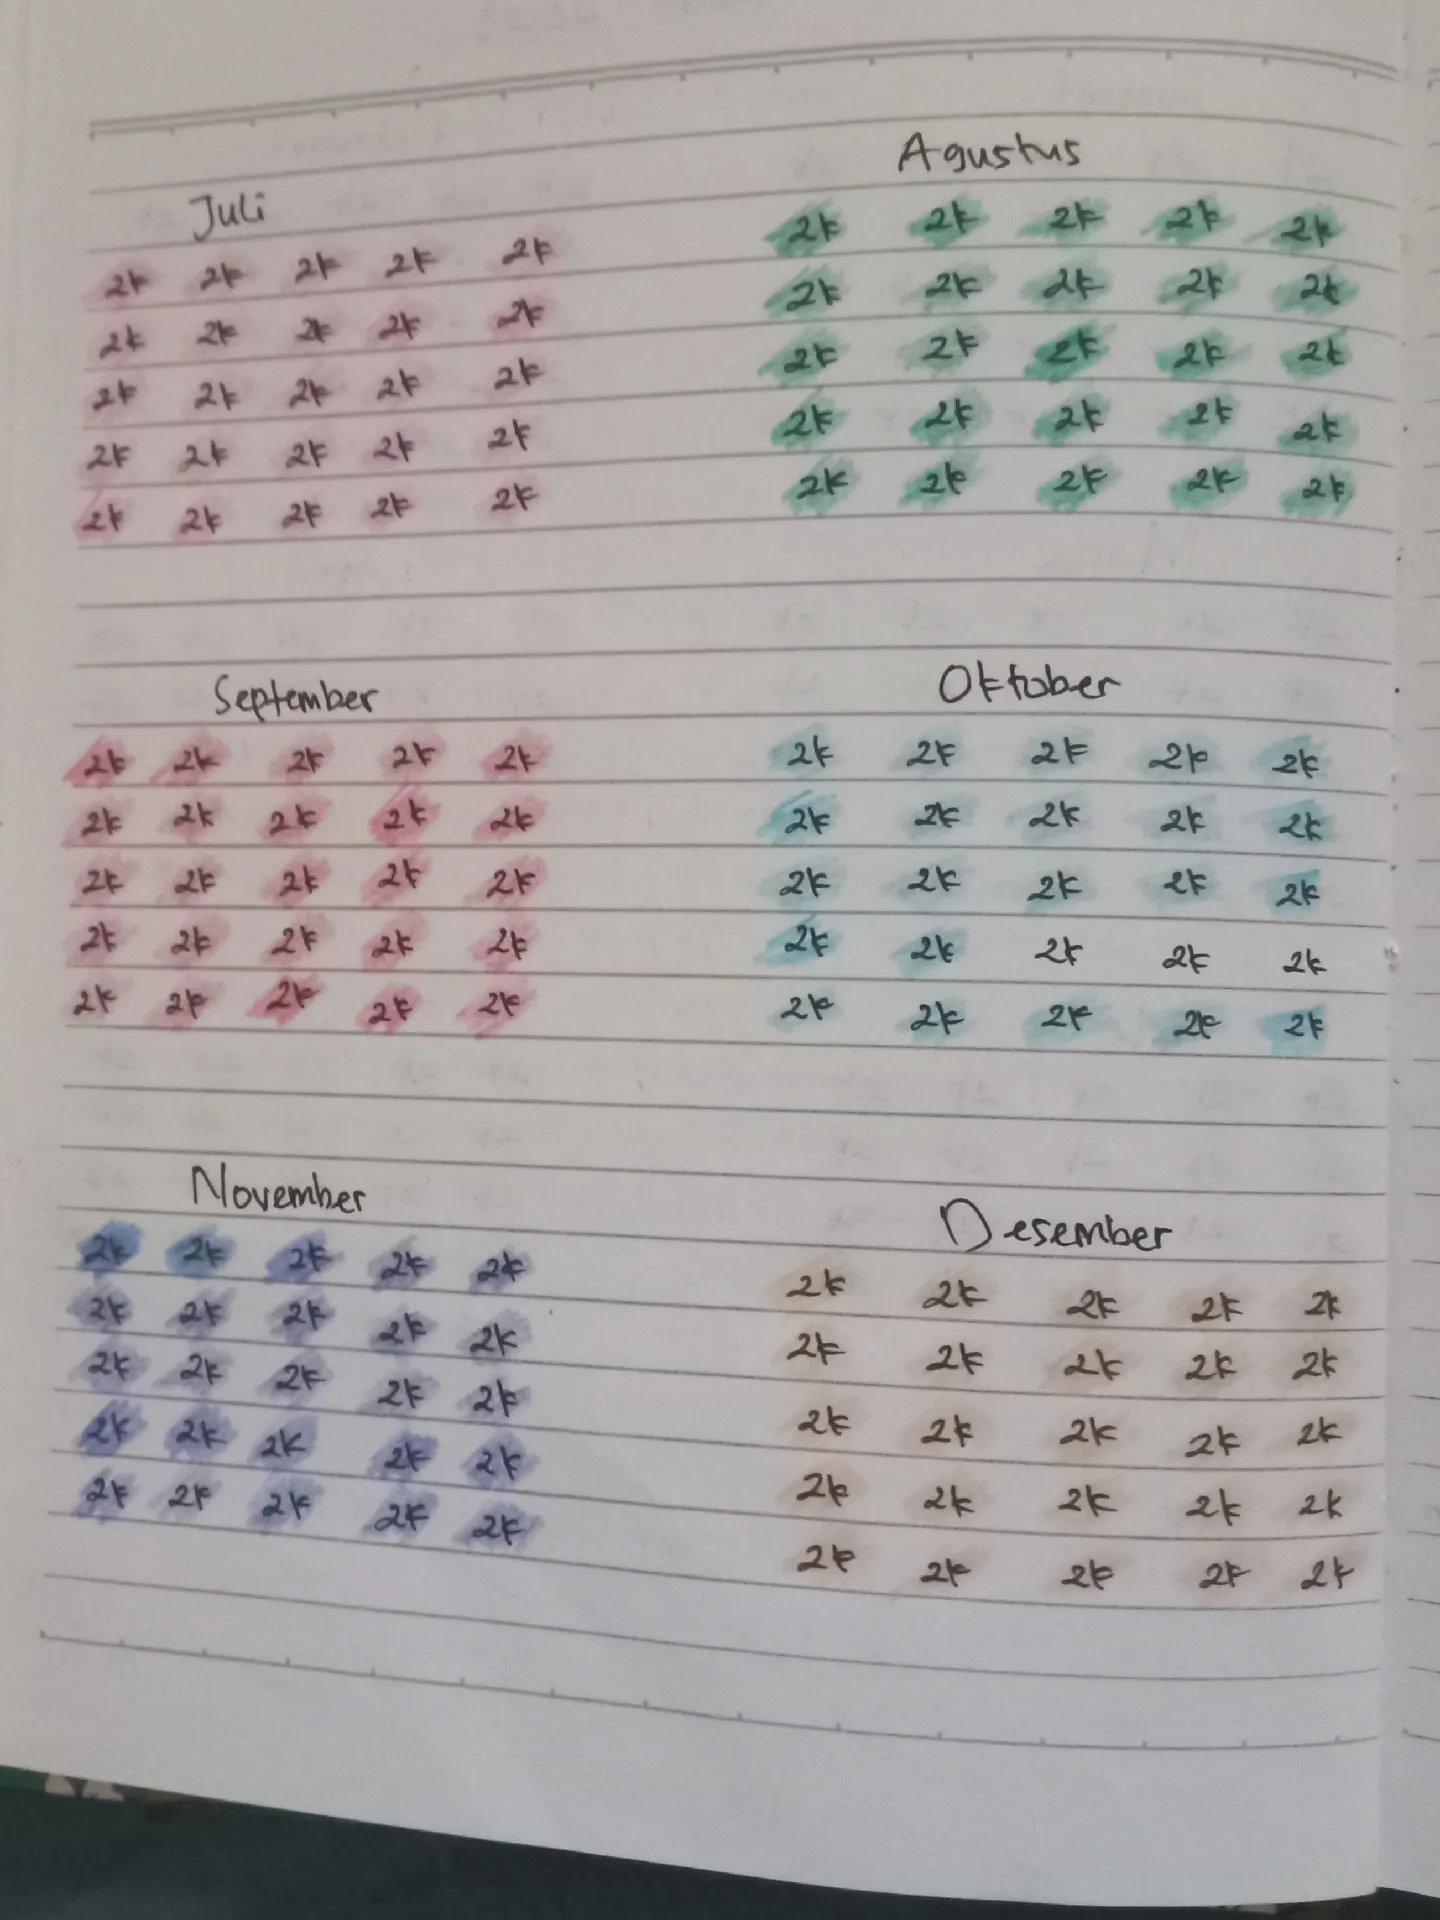 Juli
2k 2k 2k 2k 2k
2k 2k 2k 2k 2k
2k 2k 2k 2k 2k
2k 2k 2k 2k 2k
2k 2k 2k 2k 2k
Agustus
2k 2k 2k 2k 2k
2k 2k 2k 2k 2k
2k 2k 2k 2k 2k
2k 2k 2k 2k 2k
2k 2k 2k 2k 2k
September
2k 2k 2k 2k 2k
2k 2k 2k 2k 2k
2k 2k 2k 2k 2k
2k 2k 2k 2k 2k
2k 2k 2k 2k 2k
Oktober
2k 2k 2k 2k 2k
2k 2k 2k 2k 2k
2k 2k 2k 2k 2k
2k 2k 2k 2k 2k
2k 2k 2k 2k 2k
November
2k 2k 2k 2k 2k
2k 2k 2k 2k 2k
2k 2k 2k 2k 2k
2k 2k 2k 2k 2k
2k 2k 2k 2k 2k
Desember
2k 2k 2k 2k 2k
2k 2k 2k 2k 2k
2k 2k 2k 2k 2k
2k 2k 2k 2k 2k
2k 2k 2k 2k 2k